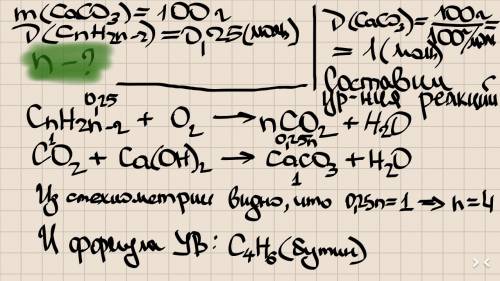 m(CaCO₃)=100г
D(CnH2n-2)=0,25(моль)
n-?
D(CaCO₃)=100г/100г/моль=
=1(моль)
Составим
ур-ния реакций
0,25
CnH2n-2 + O₂ → nCO₂ + H₂O
1 0,25n
CO₂ + Ca(OH)₂ → CaCO₃ + H₂O
1
Из стехиометрии видно, что 0,25n=1 ⇒ n=4
И формула УВ: C₄H₆(бутин)